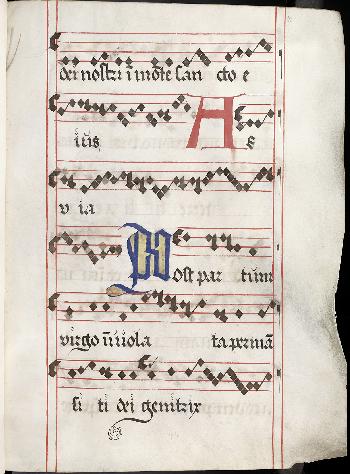 dei nostri ī mōte san cto e
iꝰ A e
v ia
Post par tum
virgo īuiola ta permā
si ti dei genitrix